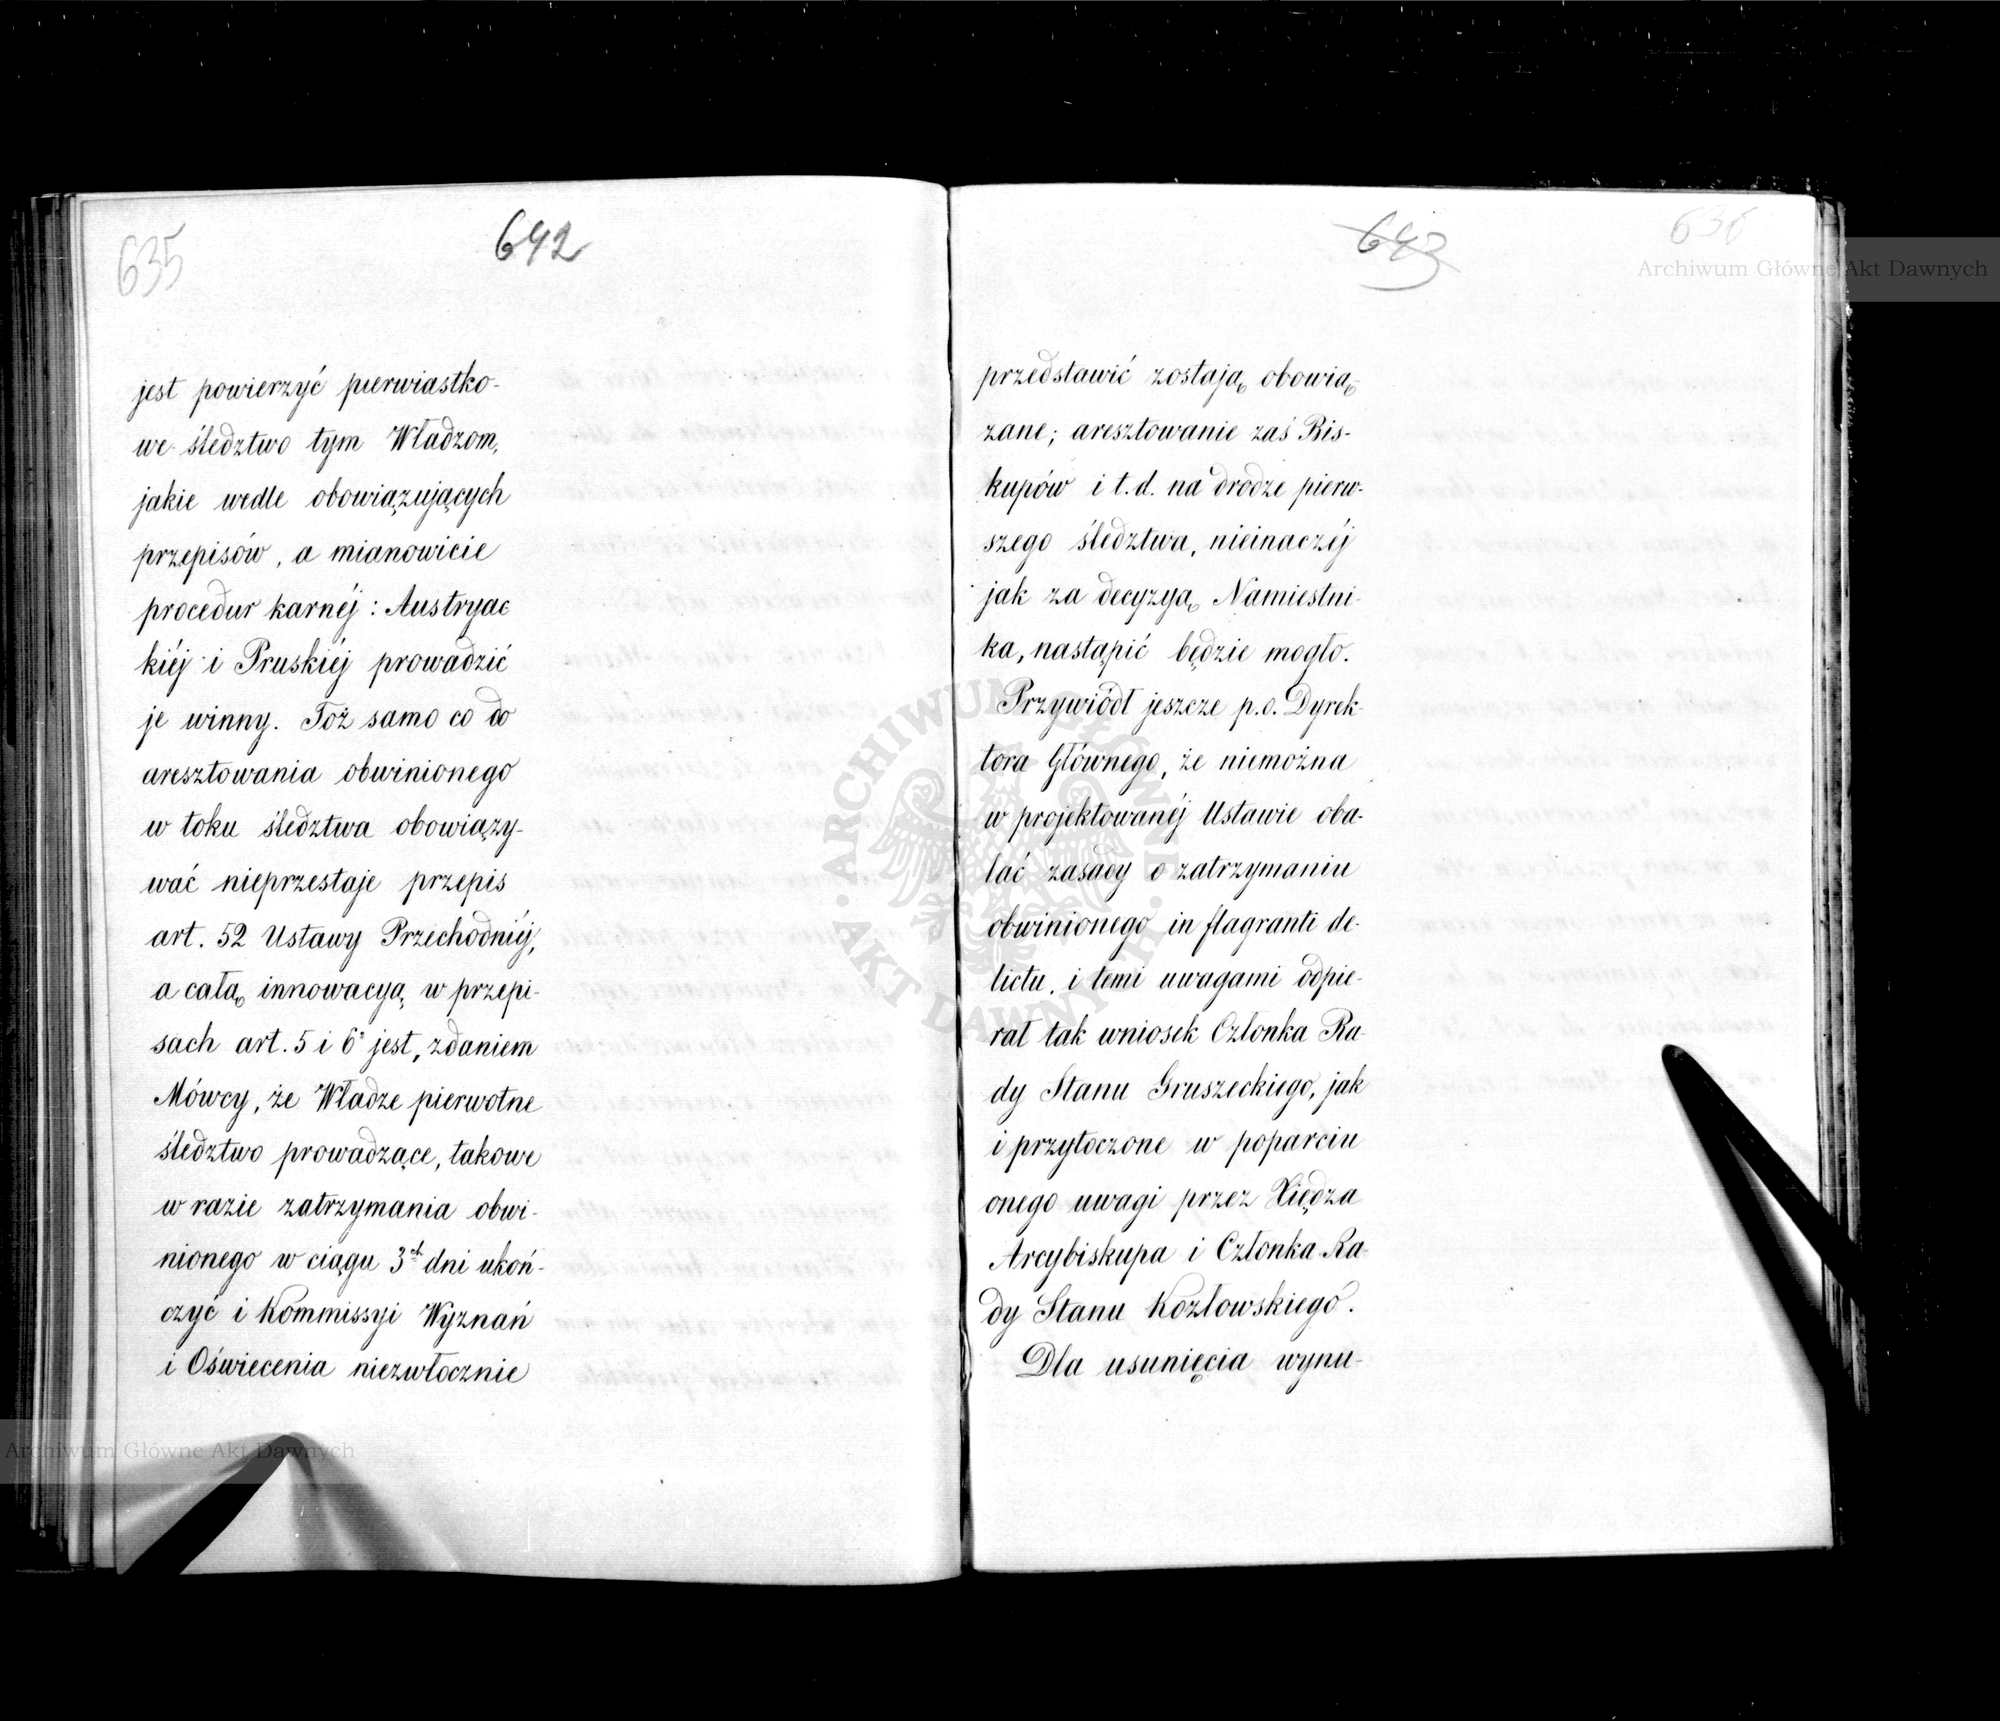 635
642
jest powierzyć pierwiastko-
we śledztwo tym Władzom,
jakie wedle obowiązujących
przepisów, a mianowicie
procedur karnéj: Austryac
kiéj i Pruskiéj prowadzić
je winny. Toż samo co do
aresztowania obwinionego
w toku śledztwa obowiązy-
wać nieprzestaje przepis
art. 52 Ustawy Przechodniéj,
a całą innowacyą w przepi-
sach art. 5 i 6° jest, zdaniem
Mówcy, że Władze pierwotne
śledztwo prowadzące, takowe
w razie zatrzymania obwi-
nionego w ciągu 3ch dni ukoń-
czyć i Kommissyi Wyznań
i Oświecenia niezwłocznie
643
636
przedstawić zostają obowią-
zane; aresztowanie zaś Bis-
kupów i t.d. na drodze pierw-
szego śledztwa, nieinaczéj
jak za decyzyą Namiestni-
ka, nastąpić będzie mogło.
Przywiódł jeszcze p.o. Dyrek-
tora Głównego, że niemożna
w projektowanéj Ustawie oba-
lać zasady o zatrzymaniu
obwinionego in flagranti de-
lictu, i temi uwagami odpie-
rał tak wniosek Członka Ra-
dy Stanu Gruszeckiego, jak
i przytoczone w poparciu
onego uwagi przez Xiędza
Arcybiskupa i Członka Ra-
dy Stanu Kozłowskiego.
Dla usunięcia wynu-
Archiwum Główne Akt Dawnych
Archiwum Główne Akt Dawnych
ARCHIWUM GŁÓWNE AKT DAWNYCH